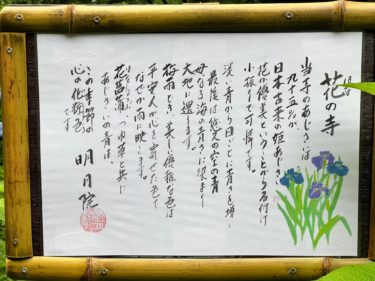 花の寺
当寺のあじさいは
九十五%が、
日本古来の姫あじさい
花が優美ということから名付け
小振りで可憐です。
淡い青から日ごとに青さを増し
最後は悠久の空の青
母なる海の青さに染まり
大地に還ります。
梅雨どきに美しく優雅な色は
平安人が心を寄せた色で
なぜか雨に映えます。
花菖蒲、つゆ草と共に
あじさいの青は、
この季節の
心の化粧色です
明月院